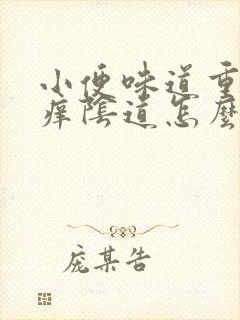 小便味道重
痒陰道怎麼
庞某告